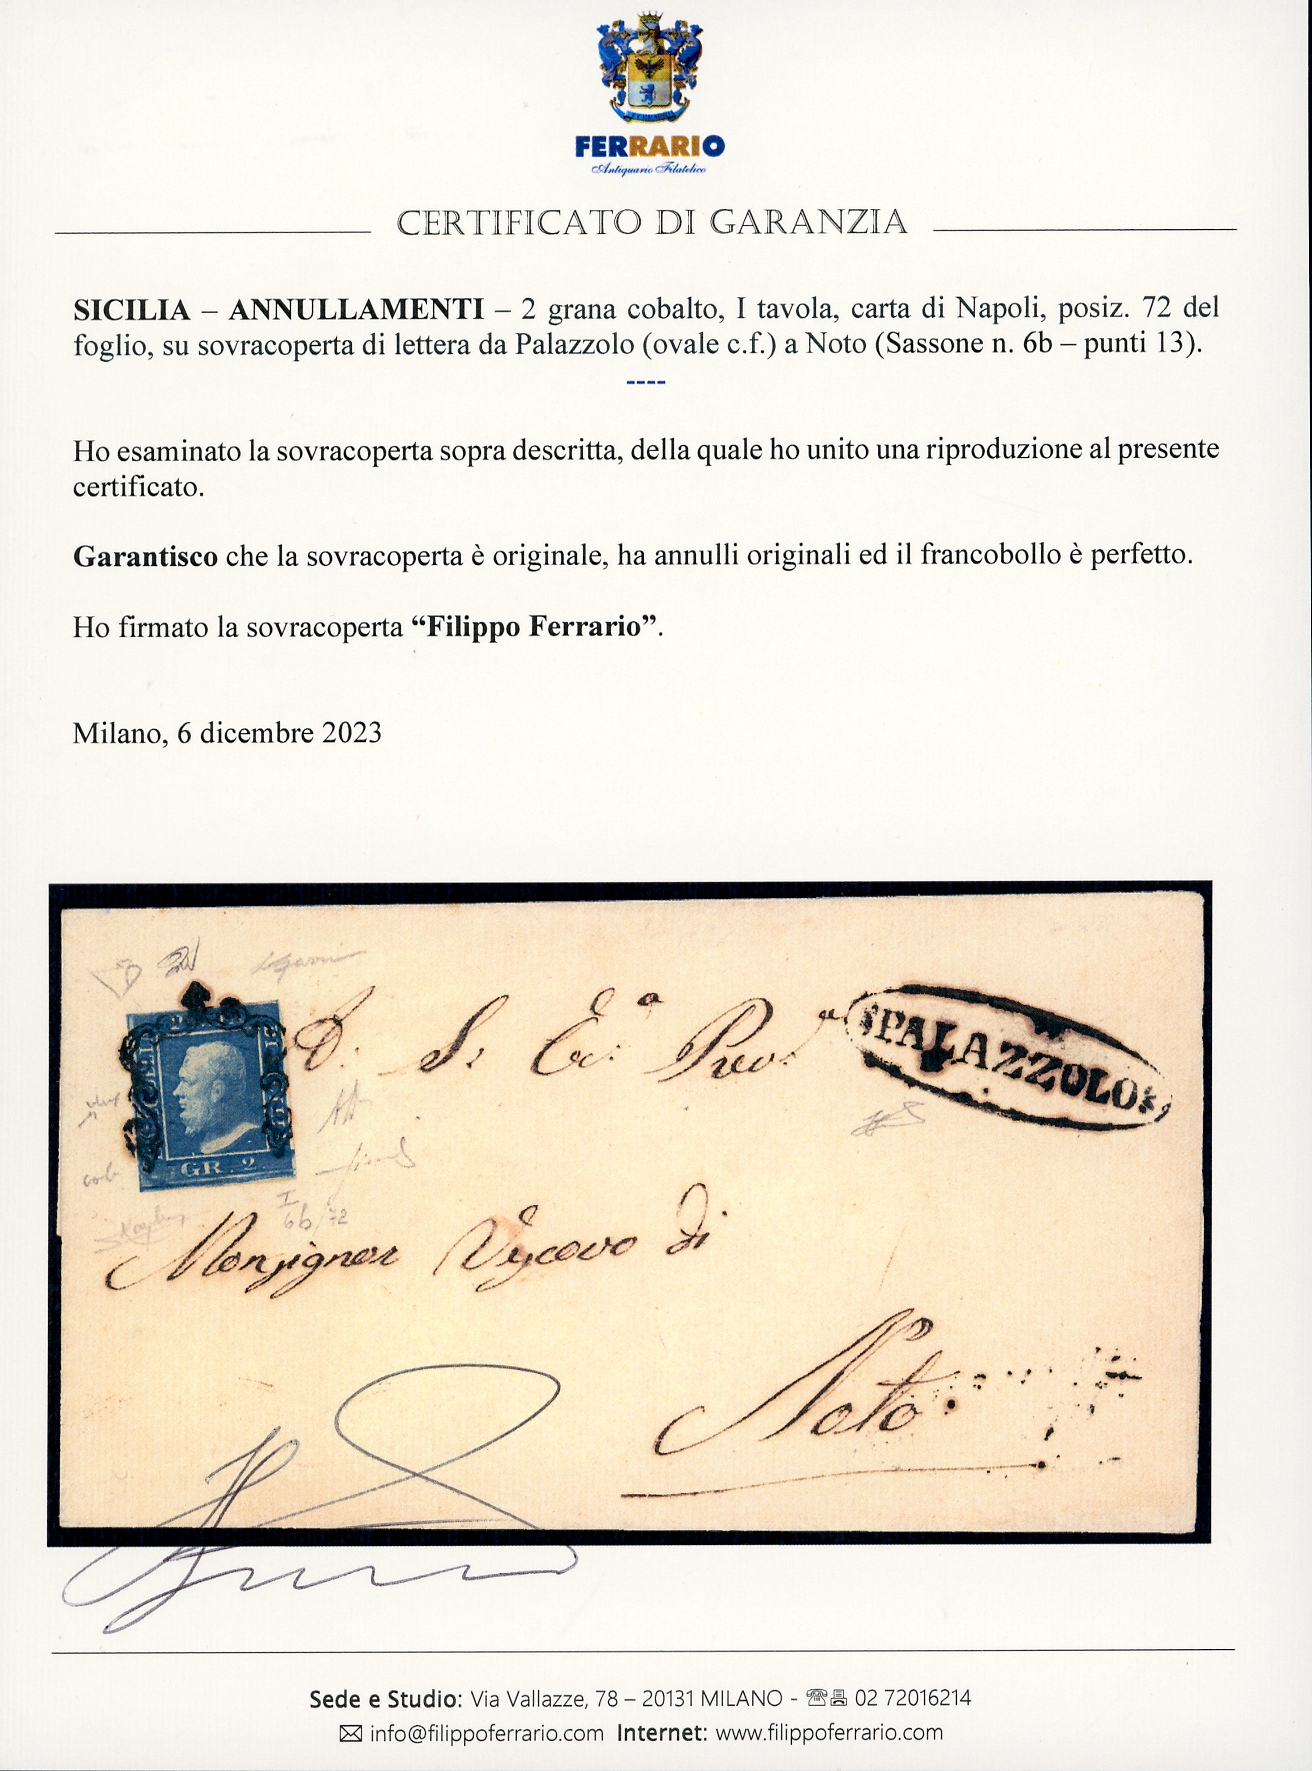 FERRARIO
Antiquario Filatelico
CERTIFICATO DI GARANZIA
SICILIA – ANNULLAMENTI – 2 grana cobalto, I tavola, carta di Napoli, posiz. 72 del
foglio, su sovracoperta di lettera da Palazzolo (ovale c.f.) a Noto (Sassone n. 6b – punti 13).
----
Ho esaminato la sovracoperta sopra descritta, della quale ho unito una riproduzione al presente
certificato.
Garantisco che la sovracoperta è originale, ha annulli originali ed il francobollo è perfetto.
Ho firmato la sovracoperta “Filippo Ferrario”.
Milano, 6 dicembre 2023
PALAZZOLO
GR. 2
I
6b/72
Monsignor Vescovo di
Noto
Sede e Studio: Via Vallazze, 78 – 20131 MILANO - 02 72016214
info@filippoferrario.com Internet: www.filippoferrario.com